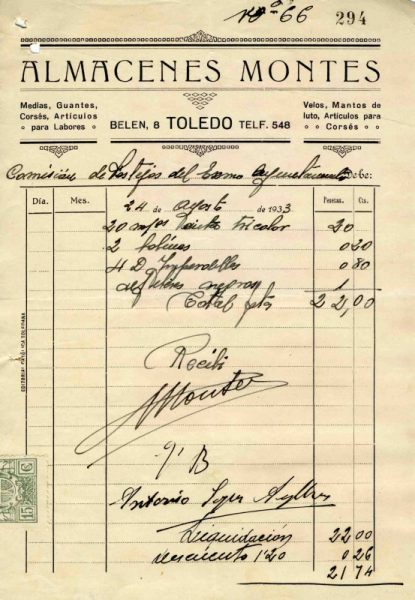 Nº 66 294
ALMACENES MONTES
Medias, Guantes,
Corsés, Artículos
para Labores
BELEN, 8 TOLEDO TELF. 548
Velos, Mantos de
luto, Artículos para
Corsés
Comisión de Festejos del Excmo Ayuntamiento Debe:
Día. Mes. Pesetas. Cts.
24 de Agosto de 1933
20 mtros cinta tricolor 20
2 0 20
4 D. Imperdibles 0 80
alfileres negros 1
Total ptas 22,00
Recibí
Montes
Vº Bº
Antonio
Liquidación 22 00
descuento 1'20 0 26
21 74
15 C